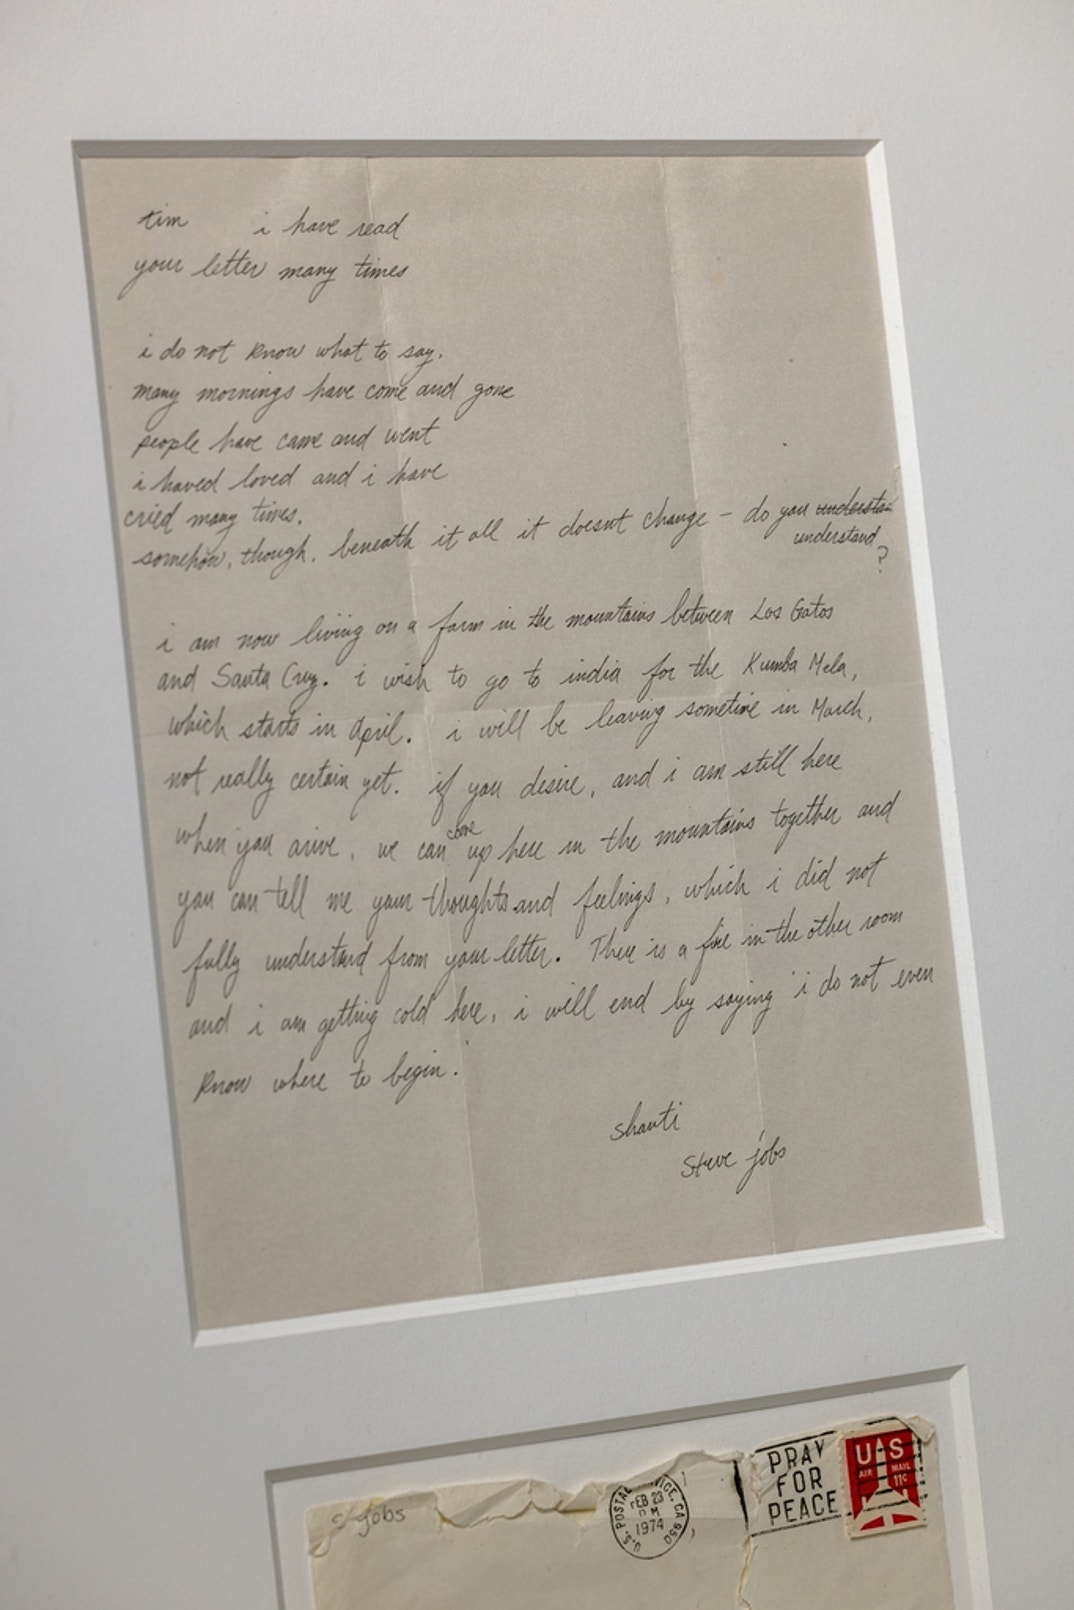 tim i have read
your letter many times
i do not know what to say.
many mornings have come and gone
people have came and went
i haved loved and i have
cried many times.
somehow, though, beneath it all it doesnt change - do you understa
understand
?
i am now living on a farm in the mountains between Los Gatos
and Santa Cruz. i wish to go to india for the Kumba Mela,
which starts in April. i will be leaving sometime in March,
not really certain yet. if you desire, and i am still here
when you arive, we can come up here in the mountains together and
you can tell me your thoughts and feelings, which i did not
fully understand from your letter. There is a fire in the other room
and i am getting cold here, i will end by saying 'i do not even
know where to begin.
shanti
Steve jobs
jobs
U.S. POSTAL
CA 950
FEB 23
1974
PRAY
FOR
PEACE
US
AIR MAIL
11¢